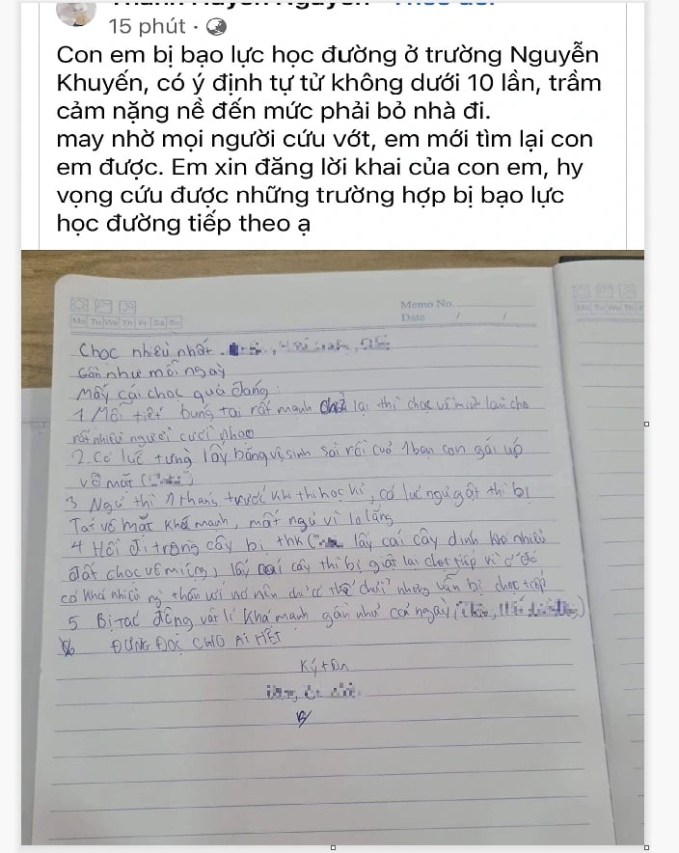 15 phút ·
Con em bị bạo lực học đường ở trường Nguyễn
Khuyến, có ý định tự tử không dưới 10 lần, trầm
cảm nặng nề đến mức phải bỏ nhà đi.
may nhờ mọi người cứu vớt, em mới tìm lại con
em được. Em xin đăng lời khai của con em, hy
vọng cứu được những trường hợp bị bạo lực
học đường tiếp theo ạ
Memo No.
Mo Tu We Th Fr Sa Su
Date / /
Chọc nhiều nhất
Gần như mỗi ngày
Mấy cái chọc quá đáng:
1 Mỗi tiết búng tai rất mạnh lại thì chọc
rất nhiều người cười nhạo
2. Có lúc từng lấy băng vệ sinh của 1 bạn con gái úp
vô mặt
3 Ngủ thì 1 tháng trước khi thi học kì, có lúc ngủ gật thì bị
Tát vô mặt khá mạnh, mất ngủ vì lo lắng
4 Hồi đi trồng cây bị lấy cái cây dính khá nhiều
đất chọc vô miệng, lấy cái cây thì bị giật lại chọc tiếp vì ở đó
có khá nhiều ng thân với nó nên vẫn bị chọc tiếp
5 Bị Tác động vật lí khá mạnh gần như cả ngày
6 ĐỪNG ĐỌC CHO AI HẾT
Ký tên